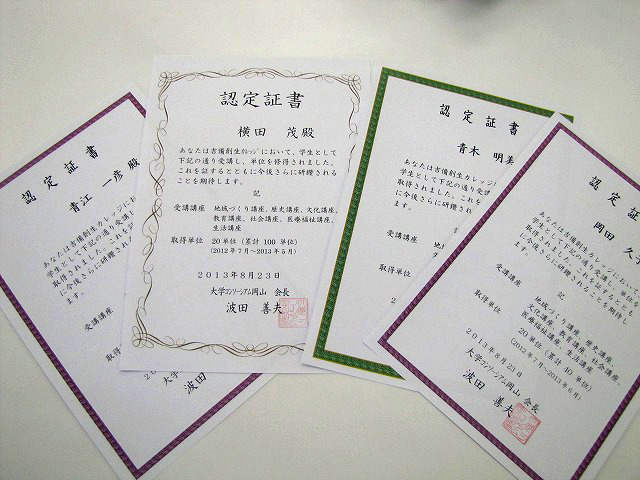 認定証書
青江 一彦 殿
あなたは吉備創生カレッジにお
学生として下記の通り受講し
取得されました。これを証
に今後さらに研鑽され
ます。
受講講座
取得単位
大学
波田
認定証書
横田 茂殿
あなたは吉備創生ｶﾚｯｼﾞにおいて、学生として
下記の通り受講し、単位を修得されました。
これを証するとともに今後さらに研鑽される
ことを期待します。
記
受講講座 地域づくり講座、歴史講座、文化講座、
教育講座、社会講座、医療福祉講座、
生活講座
取得単位 20単位（累計 100 単位）
(2012年7月～2013年5月)
2013年8月23日
大学ｺﾝｿｰｼｱﾑ岡山 会長
波田 善夫
認定証書
青木 明美
あなたは吉備創生カレッ
学生として下記の通り受
取得されました。これを
に今後さらに研鑽され
ます。
受講講座
取得単位
認定証
岡田 久子
あなたは吉備創生カレッジにお
学生として下記の通り受講し、単位
取得されました。これを証すると
に今後さらに研鑽されることを期待し
ます。
記
受講講座 地域づくり講座、歴史講座、
文化講座、教育講座、社会講座、
医療福祉講座、生活講座
取得単位 20単位（累計 40 単位）
(2012年7月～2013年6月)
2013年8月23日
大学ｺﾝｿｰｼｱﾑ岡山 会長
波田 善夫